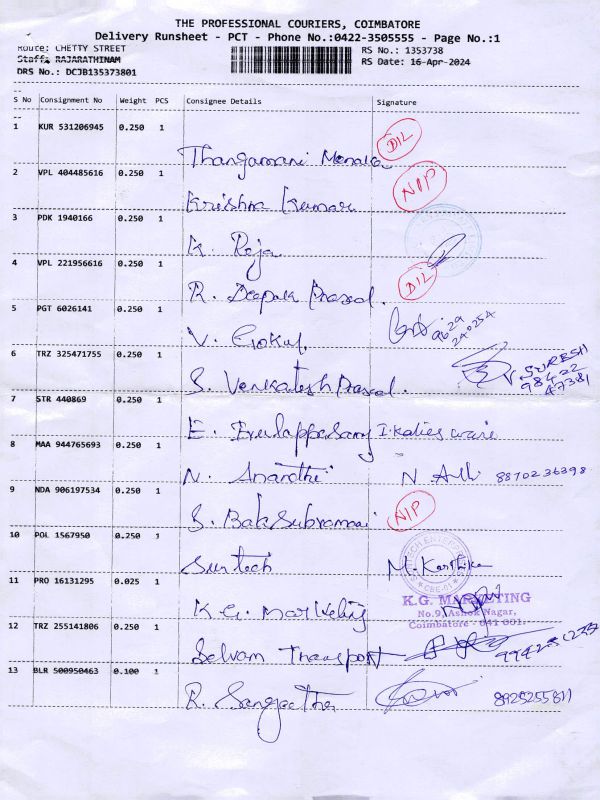 THE PROFESSIONAL COURIERS, COIMBATORE
Delivery Runsheet - PCT - Phone No.:0422-3505555 - Page No.:1
Route: CHETTY STREET
RS No.: 1353738
Staff: RAJARATHINAM
RS Date: 16-Apr-2024
DRS No.: DCJB135373801
S No Consignment No Weight PCS Consignee Details Signature
1 KUR 531206945 0.250 1
Thangamani D/L
2 VPL 404485616 0.250 1
Krishna Kumar N/P
3 PDK 1940166 0.250 1
K. Raja
4 VPL 221956616 0.250 1
R. Deepak Prasad. D/L
5 PGT 6026141 0.250 1
V. Gokul. 9629
240254
6 TRZ 325471755 0.250 1
S. Venkatesh Prasad. V. SURESH
98422
47381
7 STR 440869 0.250 1
E.
8 MAA 944765693 0.250 1
N. Ananthi N. 8870236398
9 NDA 906197534 0.250 1
S. N/P
10 POL 1567950 0.250 1
Suntech M. Karthika
11 PRO 16131295 0.025 1
K.G. Marketing K.G. MARKETING
No.9, Ashok Nagar,
Coimbatore - 641 001.
12 TRZ 255141806 0.250 1
Selvam Transport
13 BLR 500950463 0.100 1
R. Sangeetha 8925255811